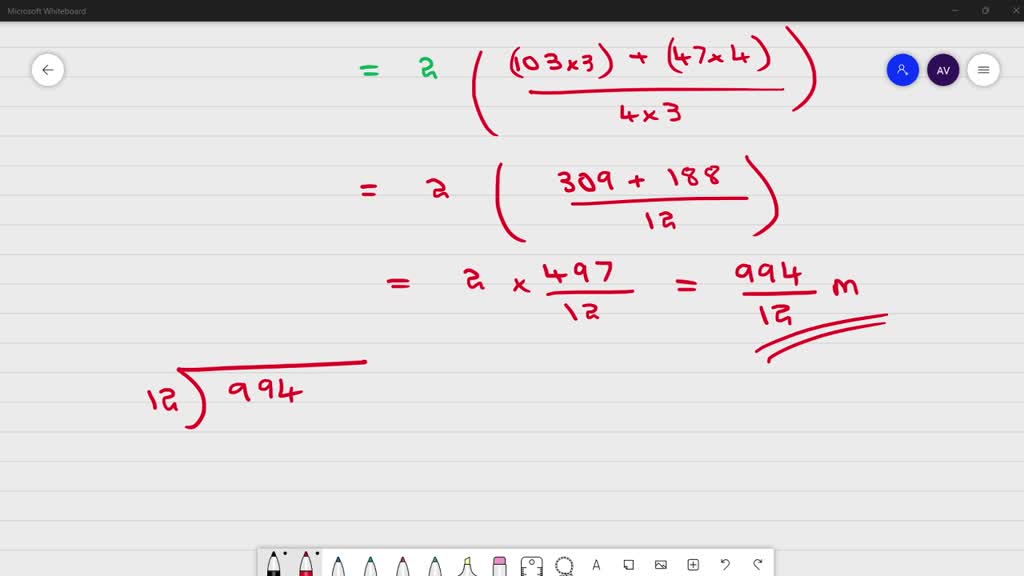 Microsoft Whiteboard
AV
= 2 ( (103 x 3) + (47 x 4) / 4 x 3 )
= 2 ( 309 + 188 / 12 )
= 2 x 497 / 12 = 994 / 12 m
12 ) 994
A